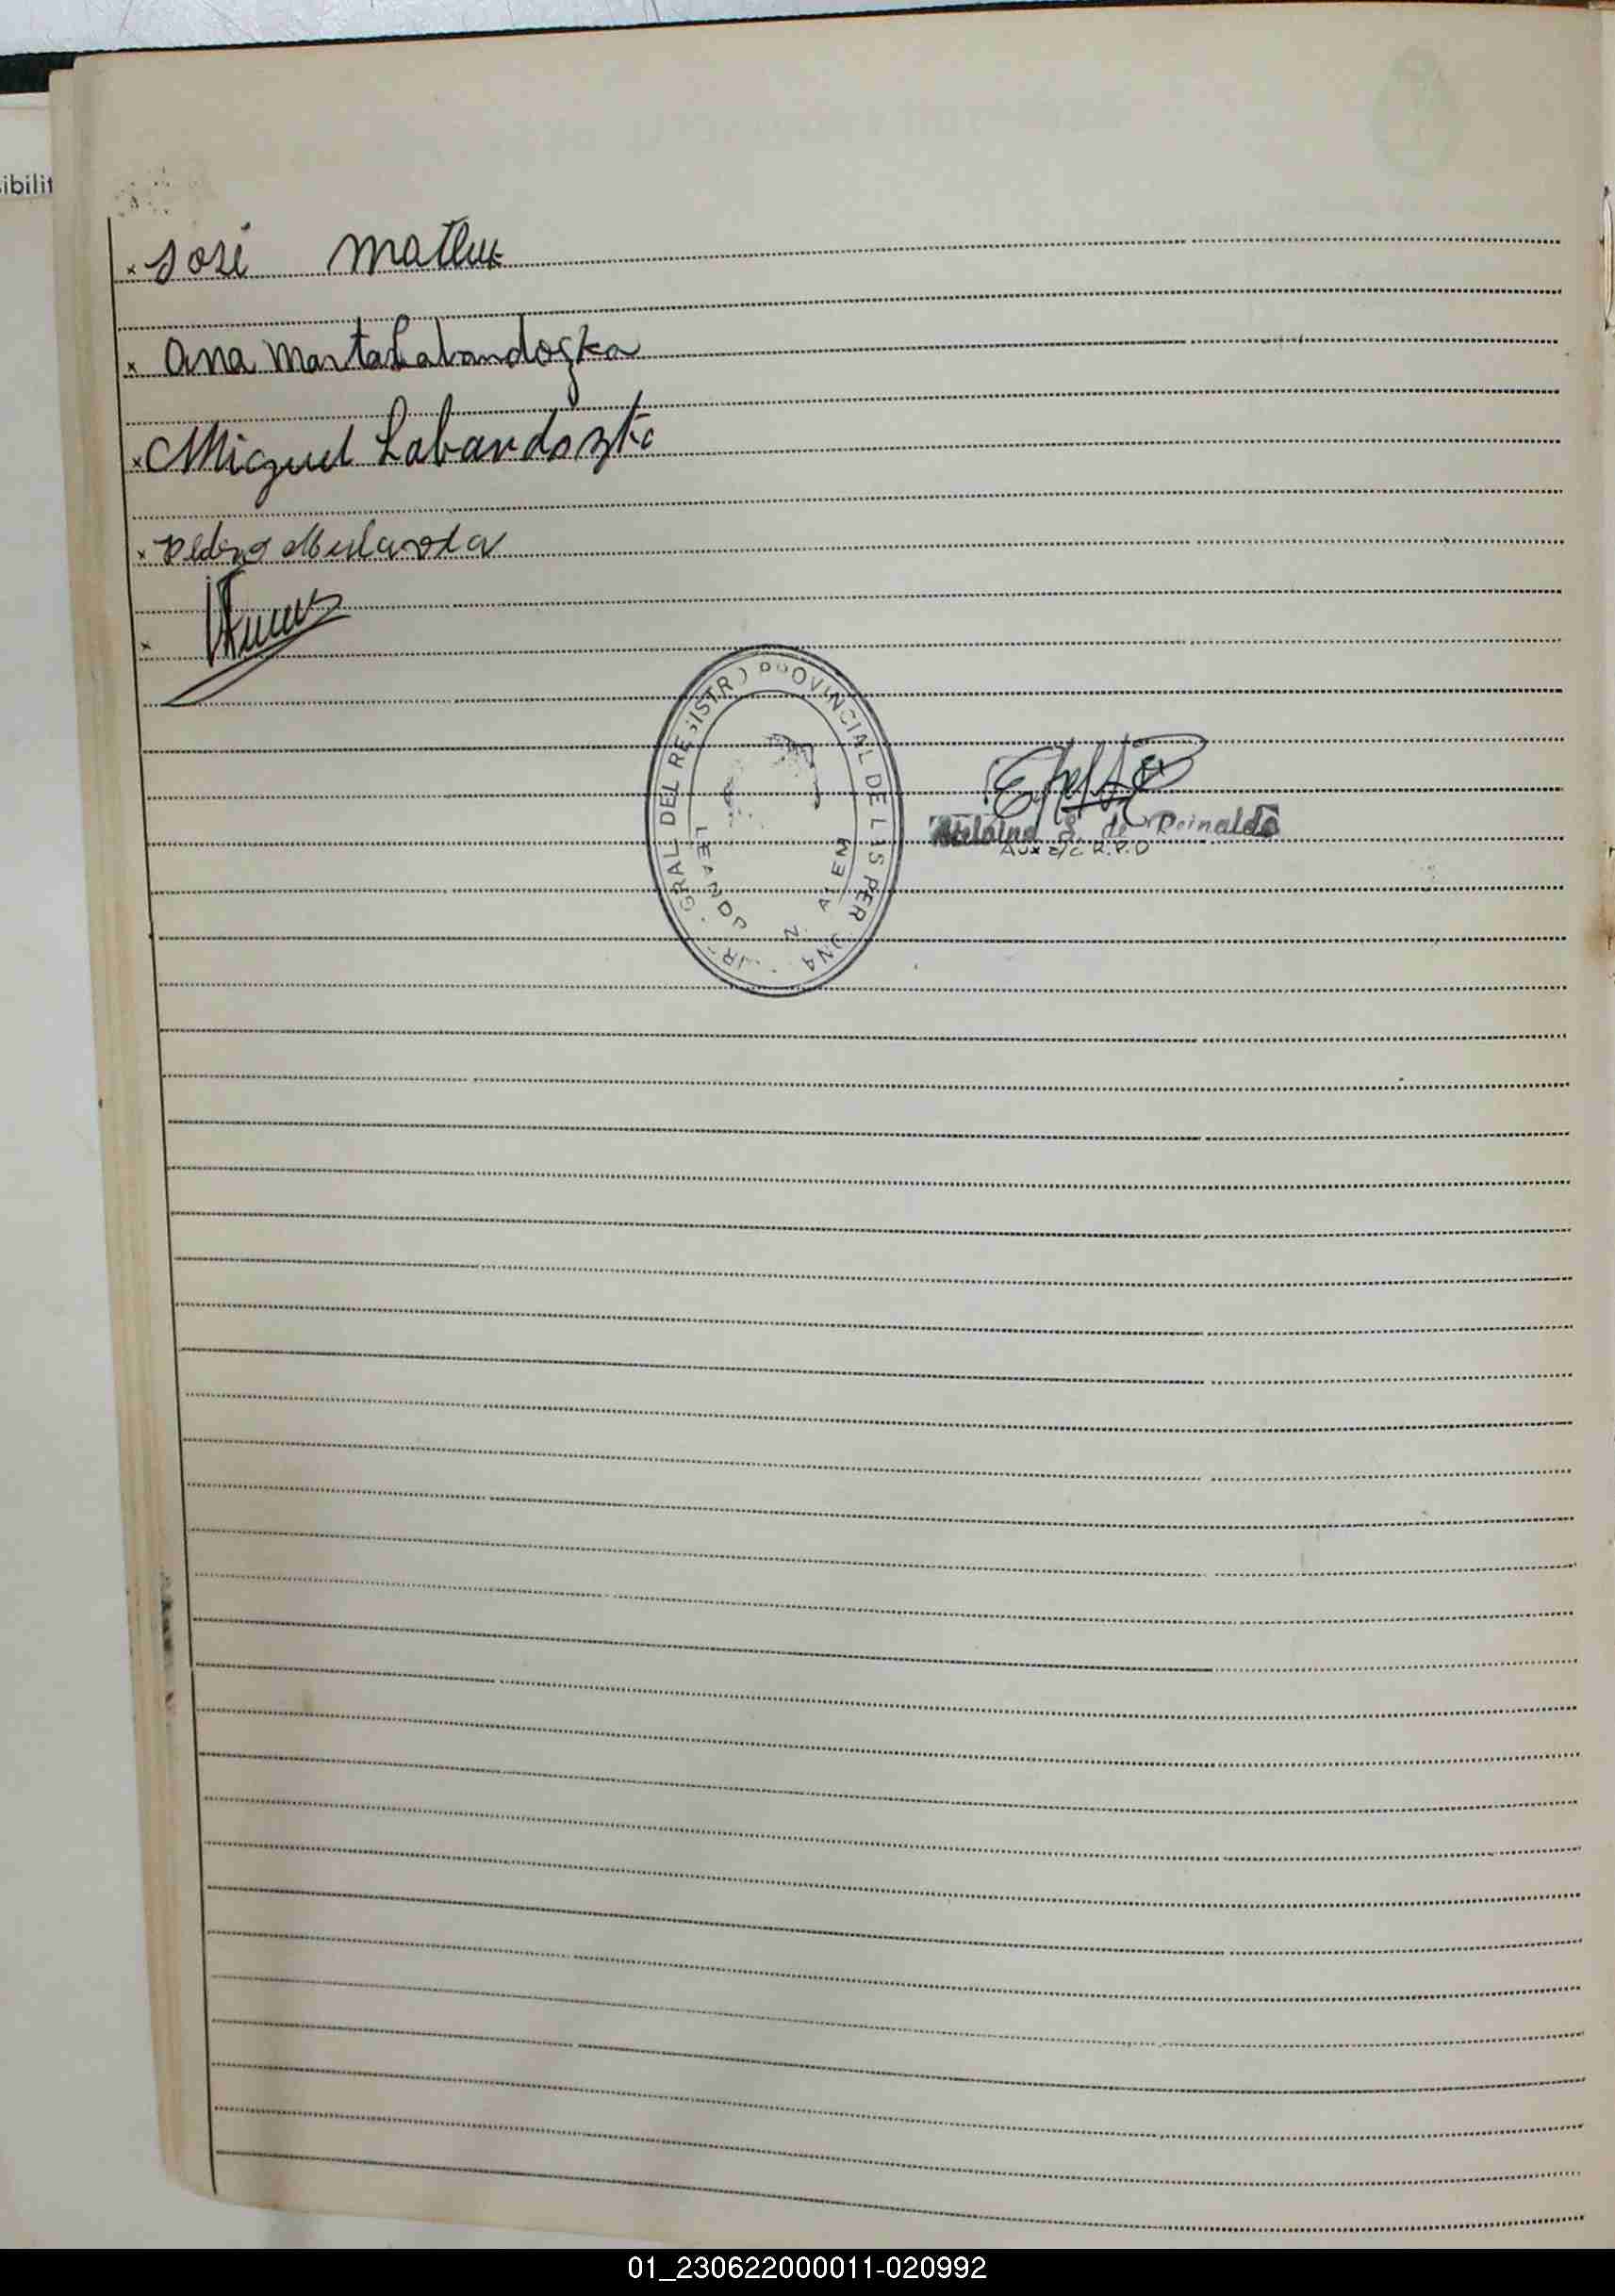 ibilit
× José Matluk
× Ana Marta Labandoszka
× Miguel Labandoszka
× Pedro
×
DIR. GRAL DEL REGISTRO PROVINCIAL DE LAS PERSONAS
LEANDRO N. ALEM
S. de Reinaldo
Aux a/c R.P.D
01_230622000011-020992